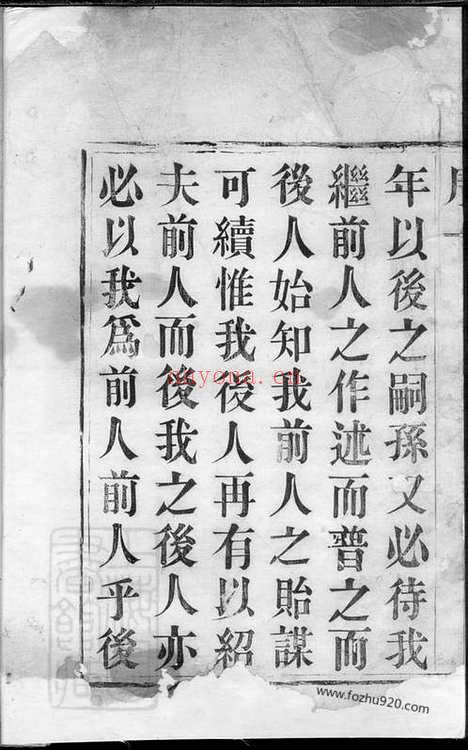 年以後之嗣孫又必待我
繼前人之作述而普之而
後人始知我前人之貽謀
可續惟我後人再有以紹
夫前人而後我之後人亦
必以我爲前人前人乎後
nuyona.cn
www.fozhu920.com